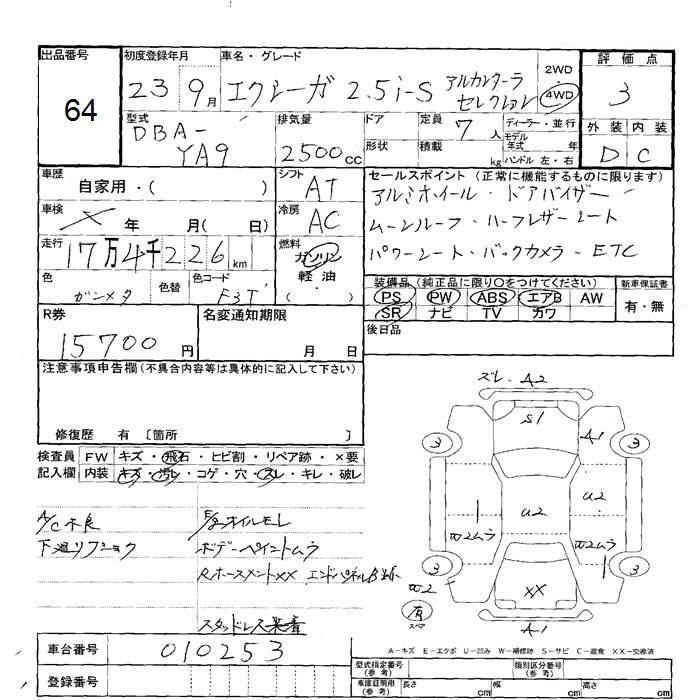 出品番号
64
初度登録年月
23 9月
車名・グレード
エクシーガ 2.5i-S アルカンターラ
セレクション
2WD
・
4WD
評価点
3
外装 内装
D C
型式
DBA-
YA9
排気量
2500cc
ドア
形状
定員 7人
積載 kg
ディーラー・並行
モデル
年式 年
ハンドル 左・右
車歴
自家用・( )
車検
年 月( 日)
走行
17万4千226km
色
ガンメタ
色替
色コード
シフト
AT
冷房
AC
燃料
ガソリン
軽油
( )
セールスポイント (正常に機能するものに限ります)
アルミホイール・ドアバイザー
ムーンルーフ・ハーフレザーシート
パワーシート・バックカメラ・ETC
装備品 (純正品に限り○をつけてください)
PS PW ABS エアB AW
SR ナビ TV カワ
新車保証書
有・無
後日品
R券
15700円
名変通知期限
月 日
注意事項申告欄(不具合内容等は具体的に記入して下さい)
修復歴 有 〔箇所 〕
検査員 FW キズ・飛石・ヒビ割・リペア跡・×要
記入欄 内装 キズ・汚レ・コゲ・穴・スレ・キレ・破レ
A/C不良
下廻りフショク
E/gオイルモレ
ボデーペイントムラ
スタッドレス装着
ズレ・A2
S1
A1
3
3
U2
U2
W2ムラ
W2ムラ
3
3
XX
W2
有
スペア
A1
A-キズ E-エクボ U-凹み W-補修跡 S-サビ C-腐食 XX-交換済
車台番号
010253
登録番号
型式指定番号
(参考)
類別区分番号
(参考)
車庫証明用
(参考)
長さ cm
幅 cm
高さ cm